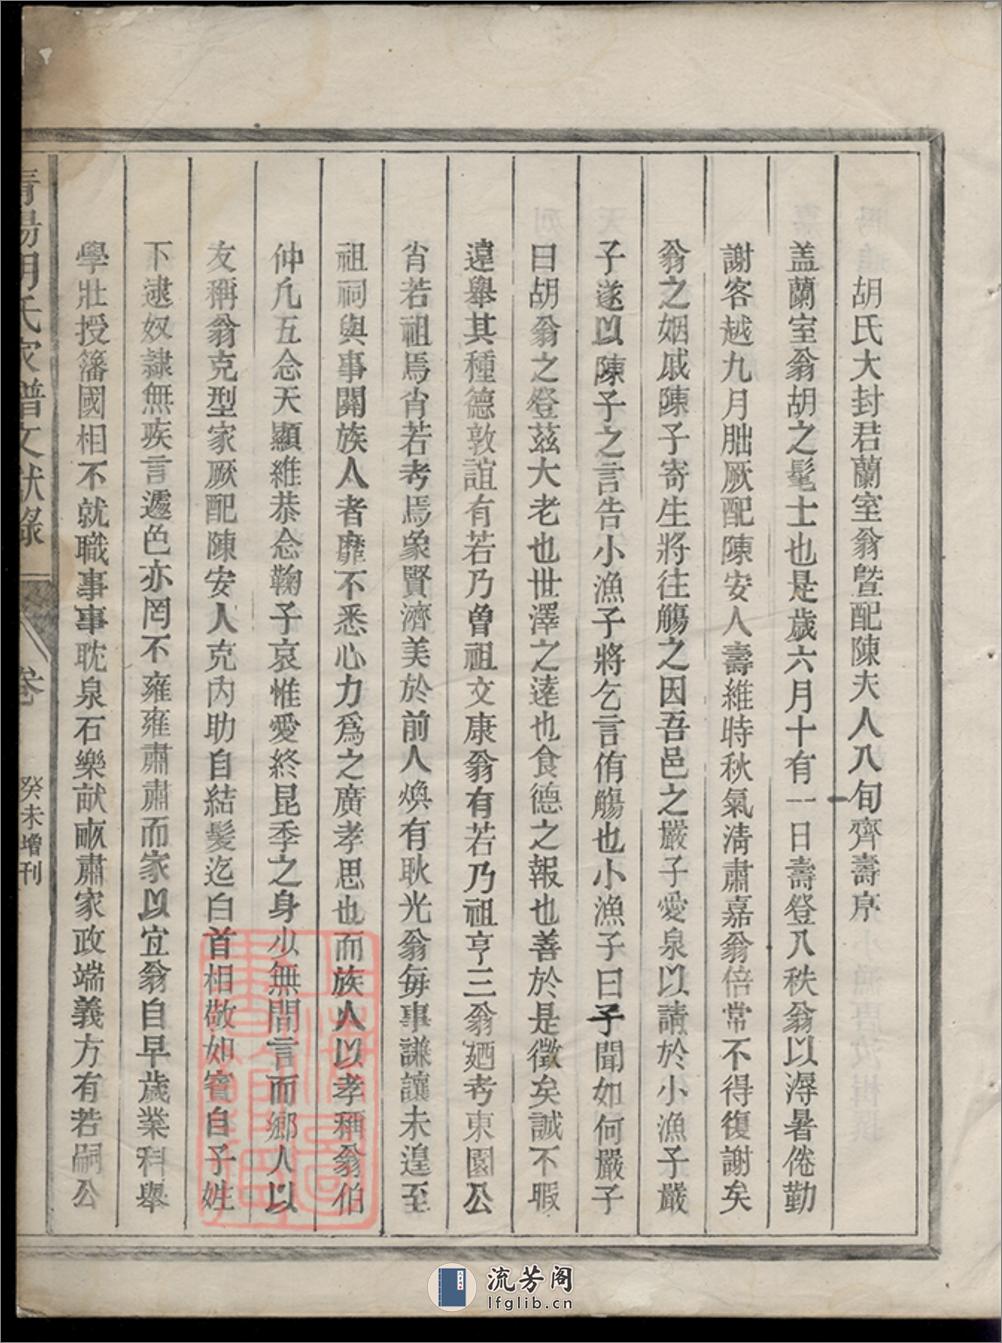 胡氏大封君蘭室翁曁配陳夫人八旬齊壽序
盖蘭室翁胡之髦士也是歲六月十有一日壽登八秩翁以溽暑倦勤
謝客越九月朏厥配陳安人壽維時秋氣淸肅嘉翁倍常不得復謝矣
翁之姻戚陳子寄生將往觴之因吾邑之嚴子愛泉以請於小漁子嚴
子遂以陳子之言告小漁子將乞言侑觴也小漁子曰子聞如何嚴子
曰胡翁之登茲大老也世澤之逺也食德之報也善於是徵矣誠不暇
遠舉其種德敦誼有若乃曽祖文康翁有若乃祖亨三翁廼考東園公
肖若祖焉肖若考焉象賢濟美於前人煥有耿光翁每事謙讓未遑至
祖祠與事關族人者靡不悉心力爲之廣孝思也而族人以孝稱翁伯
仲凢五念天顯維恭念鞠子哀惟愛終昆季之身少無間言而鄉人以
友稱翁克型家厥配陳安人克內助自結髪迄白首相敬如賓自子姓
下逮奴隷無疾言遽色亦罔不雍雍肅肅而家以宜翁自早歲業科舉
學壯授藩國相不就職事事耽泉石樂畎畝肅家政端義方有若嗣公
胡氏家譜文獻錄
卷
癸未增刊
流芳阁
lfglib.cn